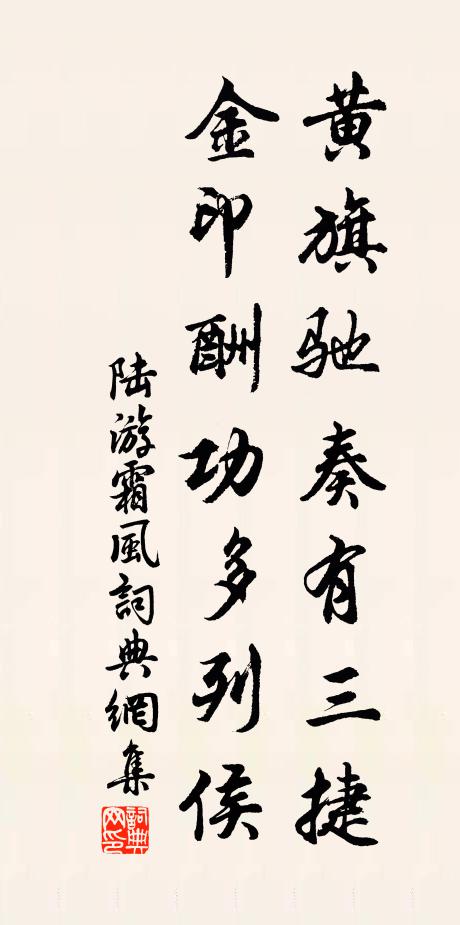 黄旗驰奏有三捷
金印酬功多列侯
陆游霜風詞典網集
詞典網印